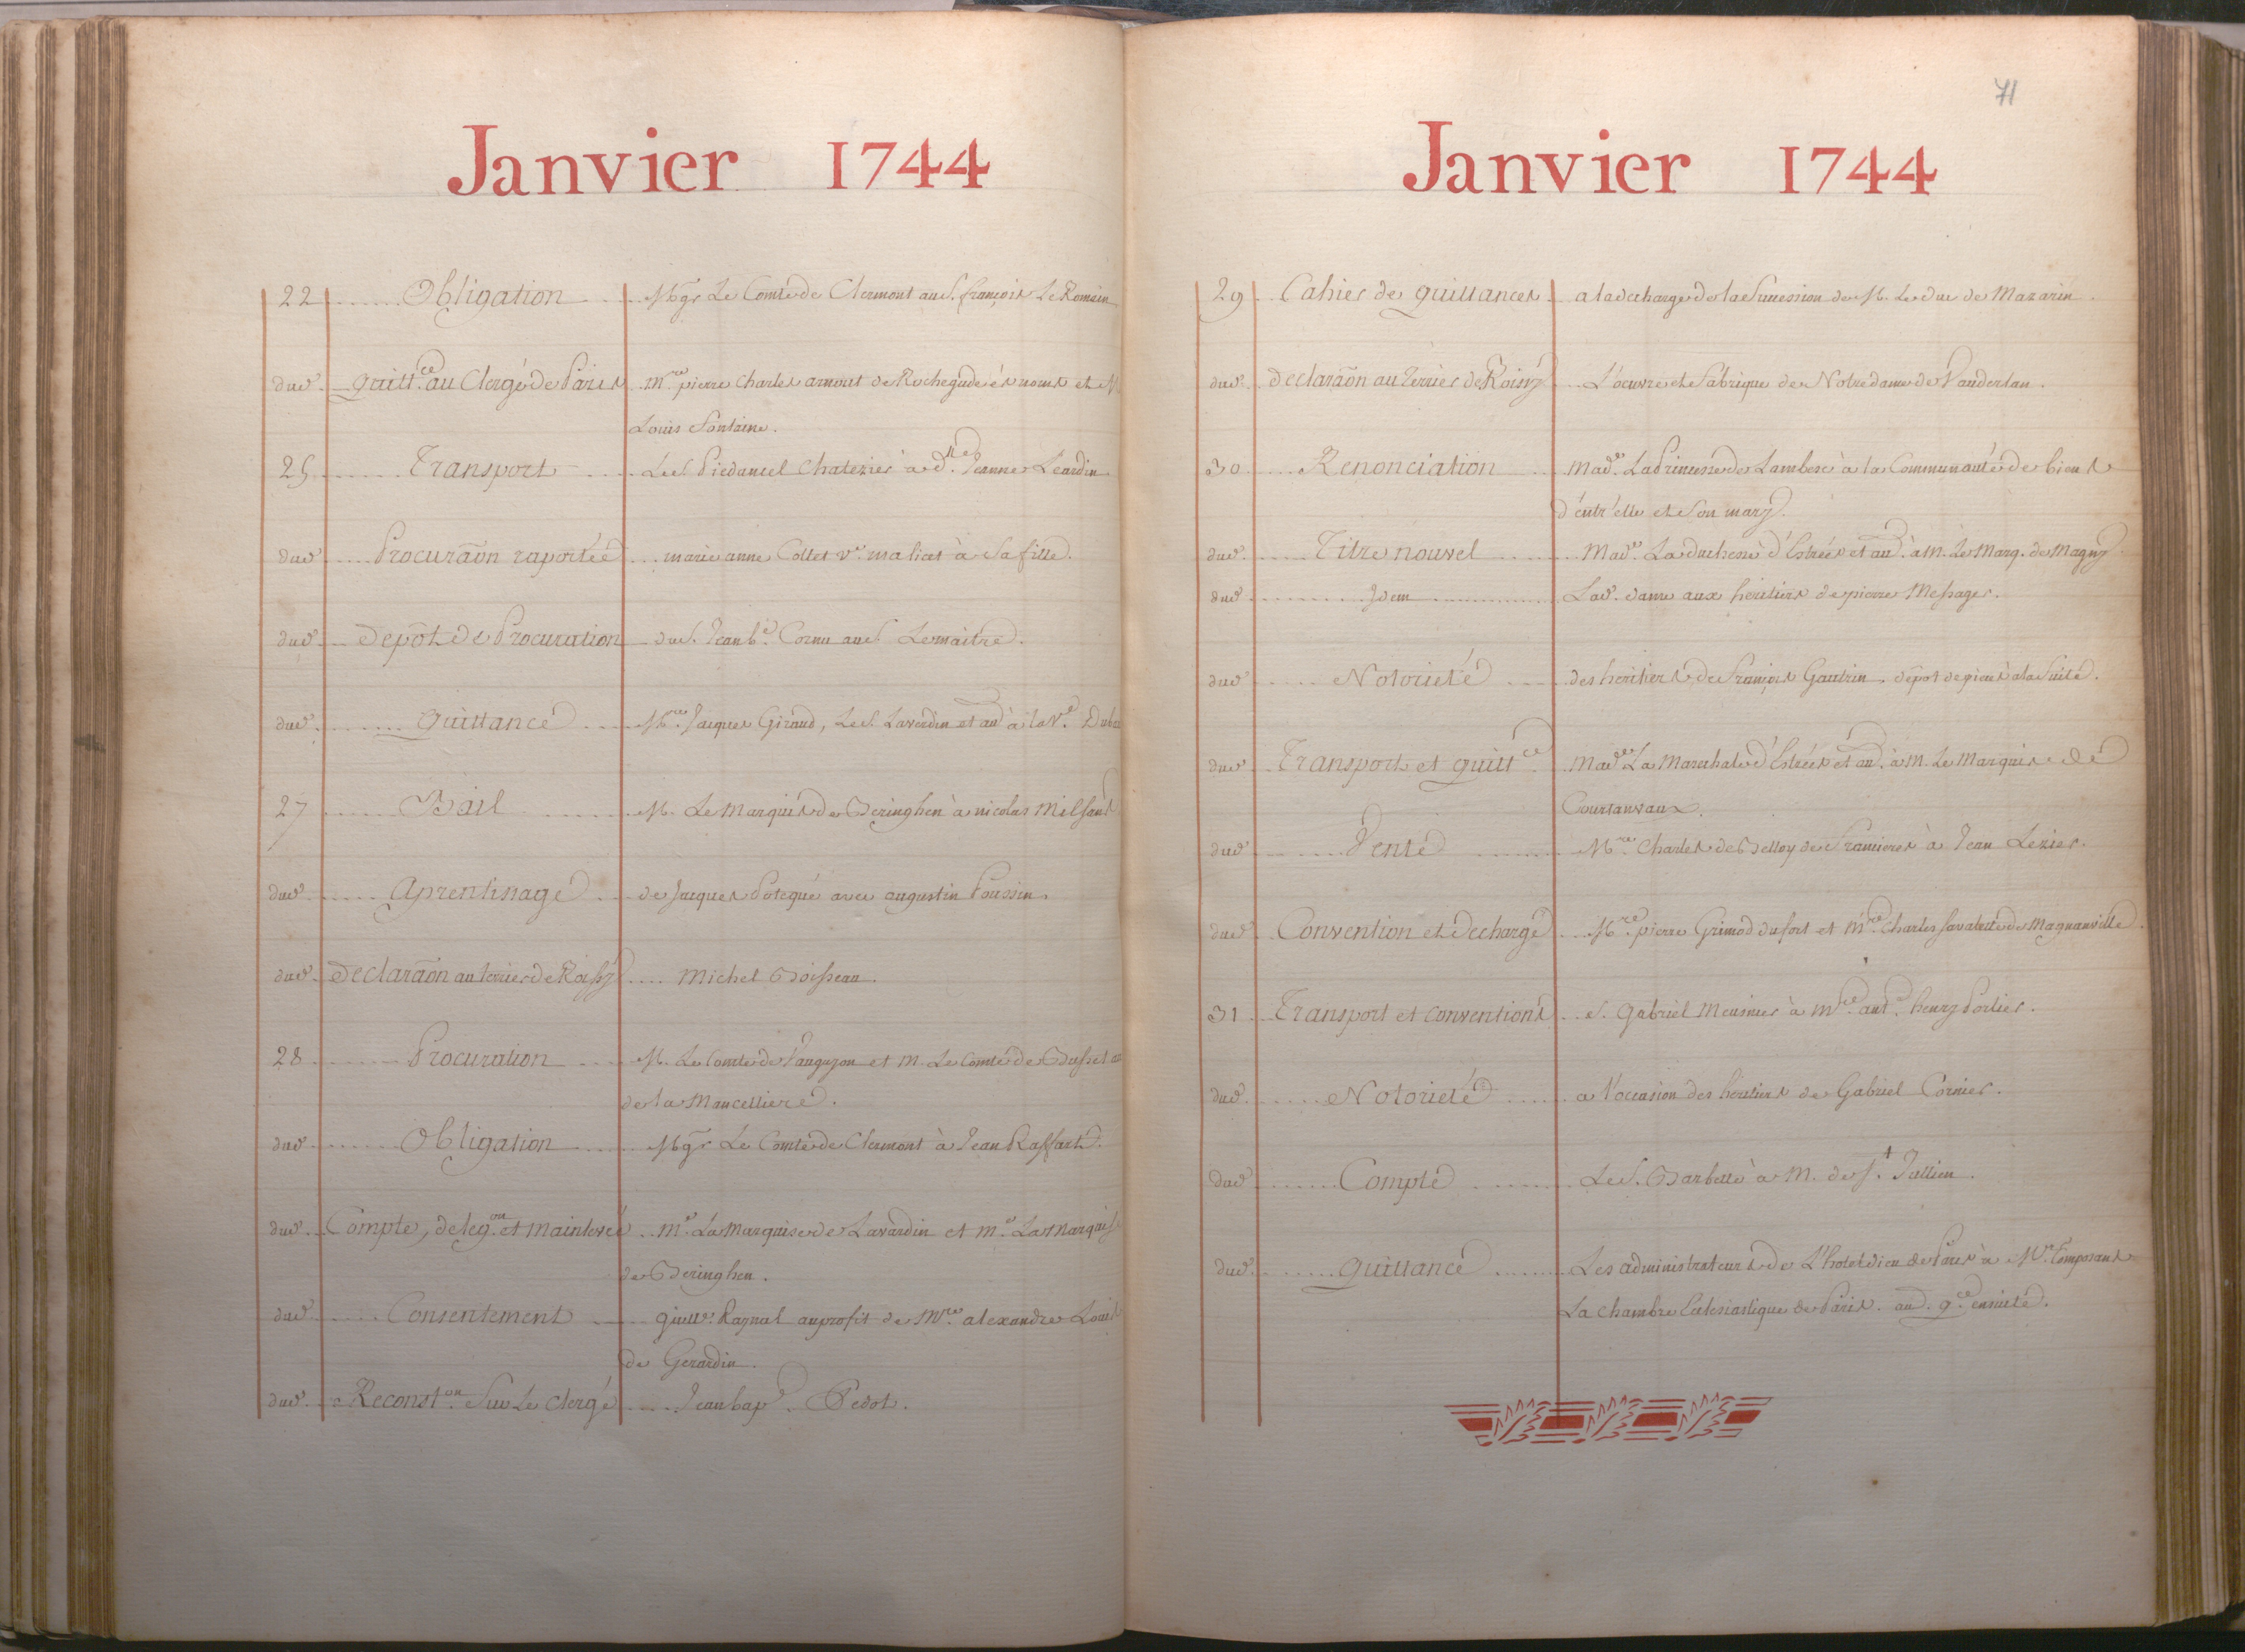 Janvier 1744
22 Obligation Mgr Le Comte de Clermont au S. françois Le Romain
dud. quitt.ce au Clergé de Paris m.re pierre Charles arnout de Rochegude és noms et M
Louis fontaine.
25 Transport Le S. Piedancel Chatezier a d.lle Jeanne Leardin
dud. Procuraõn raportée marie anne Collet v.e maliat à Sa fille.
dud. depôt de Procuration du S. Jean b.e Cornu au S. Lemaitre.
dud. quittance M.re Jacques Giraud, Le S. Laverdin et au à la V.e
27 Bail M. Le Marquis de Beringhen à nicolas Milsant
dud. aprentissage de Jacques Potequé avec augustin Poussin.
dud. declaraõn au terrier de Roissy Michel Boisseau.
28 Procuration M. Le Comte de Vauguyon et M. Le Comte de Busset
de la Mancelliere.
dud. Obligation Mgr Le Comte de Clermont à Jean Raffart.
dud. Compte, deleg.on et mainlevée m.e La Marquise de Lavardin et m.e La Marquise
de Beringhen.
dud. Consentement guill.e Raynal au profit de M.re alexandre Louis
de Gerardin.
dud. Reconst.on Sur Le Clergé Jean bap.e Pedot.
71
Janvier 1744
29 Cahier de quittances a la decharge de la Succession de M. Le Duc de Mazarin.
dud. declaraõn au Terrier de Roissy L'oeuvre et fabrique de Notre dame de Vauderlan.
30 Renonciation Mad.e La Princesse de Lambesc à la Communauté de biens
d'entr'elle et Son mary.
dud. Titre nouvel Mad.e La duchesse d'Estrées et au. à M. Le Marq. de Magny
dud. Idem Lad. dame aux heritiers de pierre Messager.
dud. Notorieté des heritiers de françois Gautrin. depot de pieces à la Suite.
dud. Transport et quitt.ce Mad.e La Marechale d'Estrées et au. à M. Le Marquis de
Courtanvaux.
dud. Vente M.re Charles de Belloy de francieres à Jean Lezier.
dud. Convention et decharge M.re pierre Grimod dufort et M.re Charles Savalette de Magnanville.
31 Transport et conventions S. Gabriel Meusnier à m.re ant.e henry Portier.
dud. Notorieté a l'occasion des heritiers de Gabriel Cornier.
dud. Compte Le S. Barbette à M. de S.t Jullien.
dud. quittance Les administrateurs de L'hotel dieu de Paris à M.rs Composant
La chambre Eclesiastique de Paris. au. q.ce ensuite.